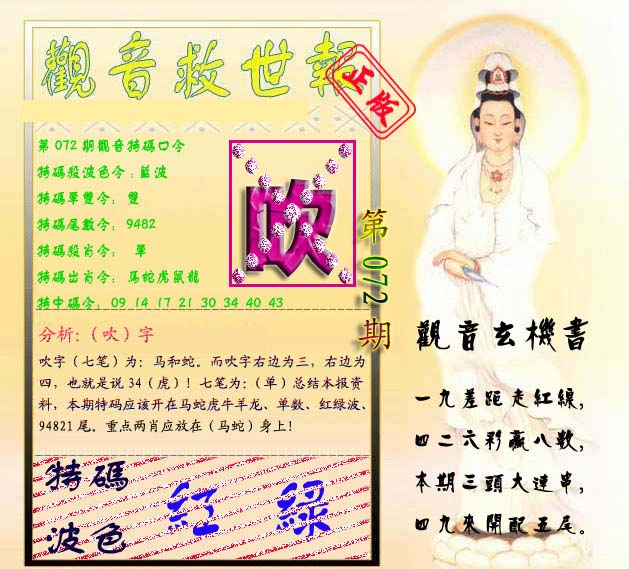 觀音救世報
正版
第072期觀音特碼口令
特碼殺波色令:藍波
特碼單雙令: 雙
特碼尾數令: 9482
特碼殺肖令: 單
特碼出肖令: 馬蛇虎鼠龍
特中碼令: 09 14 17 21 30 34 40 43
吹
第072期
分析:(吹)字
吹字(七笔)为:马和蛇。而吹字右边为三,右边为
四,也就是说34(虎)!七笔为:(单)总结本报资
料,本期特码应该开在马蛇虎牛羊龙、单数、红绿波、
94821尾。重点两肖应放在(马蛇)身上!
特碼
波色
紅 綠
觀音玄機書
一九差距走紅線,
四二六彩贏八數,
本期三頭大連串,
四九來開配五尾。